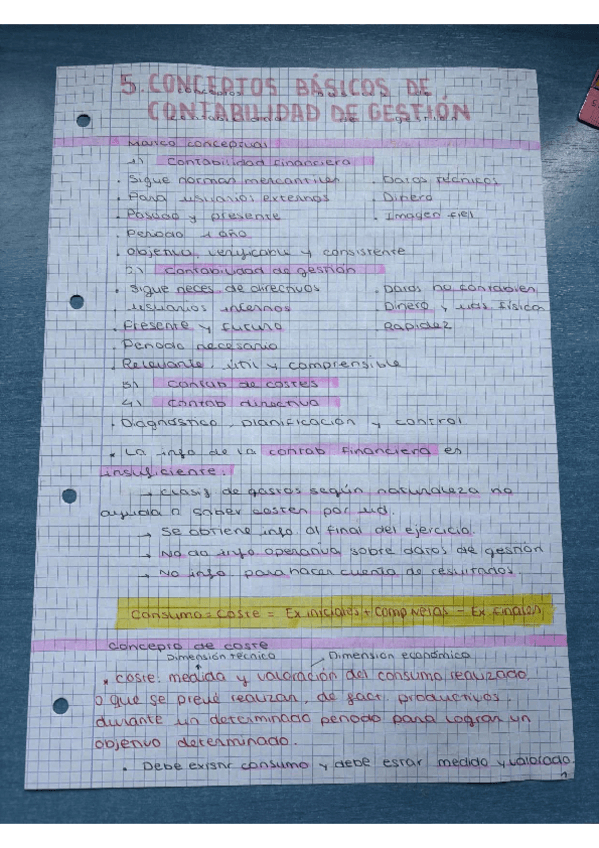 5. CONCEPTOS BÁSICOS DE
CONTABILIDAD DE GESTIÓN
Marco conceptual
1) Contabilidad financiera
· Sigue normas mercantiles · Datos técnicos
· Para usuarios externos · Dinero
· Pasado y presente · Imagen fiel
· Periodo 1 año
· Objetiva, verificable y consistente
2) Contabilidad de gestión
· Sigue neces. de directivos · Datos no contables
· Usuarios internos · Dinero y uds física
· Presente y futuro · Rapidez
· Periodo necesario
· Relevante, útil y comprensible
3) Contab de costes
4) Contab directiva
· Diagnóstico, planificación y control
* La info de la contab financiera es
insuficiente:
→ Clasif de gastos según naturaleza no
ayuda a saber costen por ud.
→ Se obtiene info al final del ejercicio.
→ No da info operativa sobre datos de gestión
→ No info para hacer cuenta de resultados.
Consumo = Coste = Ex iniciales + Comp netas - Ex finales
Concepto de coste
Dimensión técnica Dimensión económica
* Coste: medida y valoración del consumo realizado
o que se prevé realizan, de fact. productivos,
durante un determinado periodo para lograr un
objetivo determinado.
· Debe existir consumo y debe estar medido y valorado.